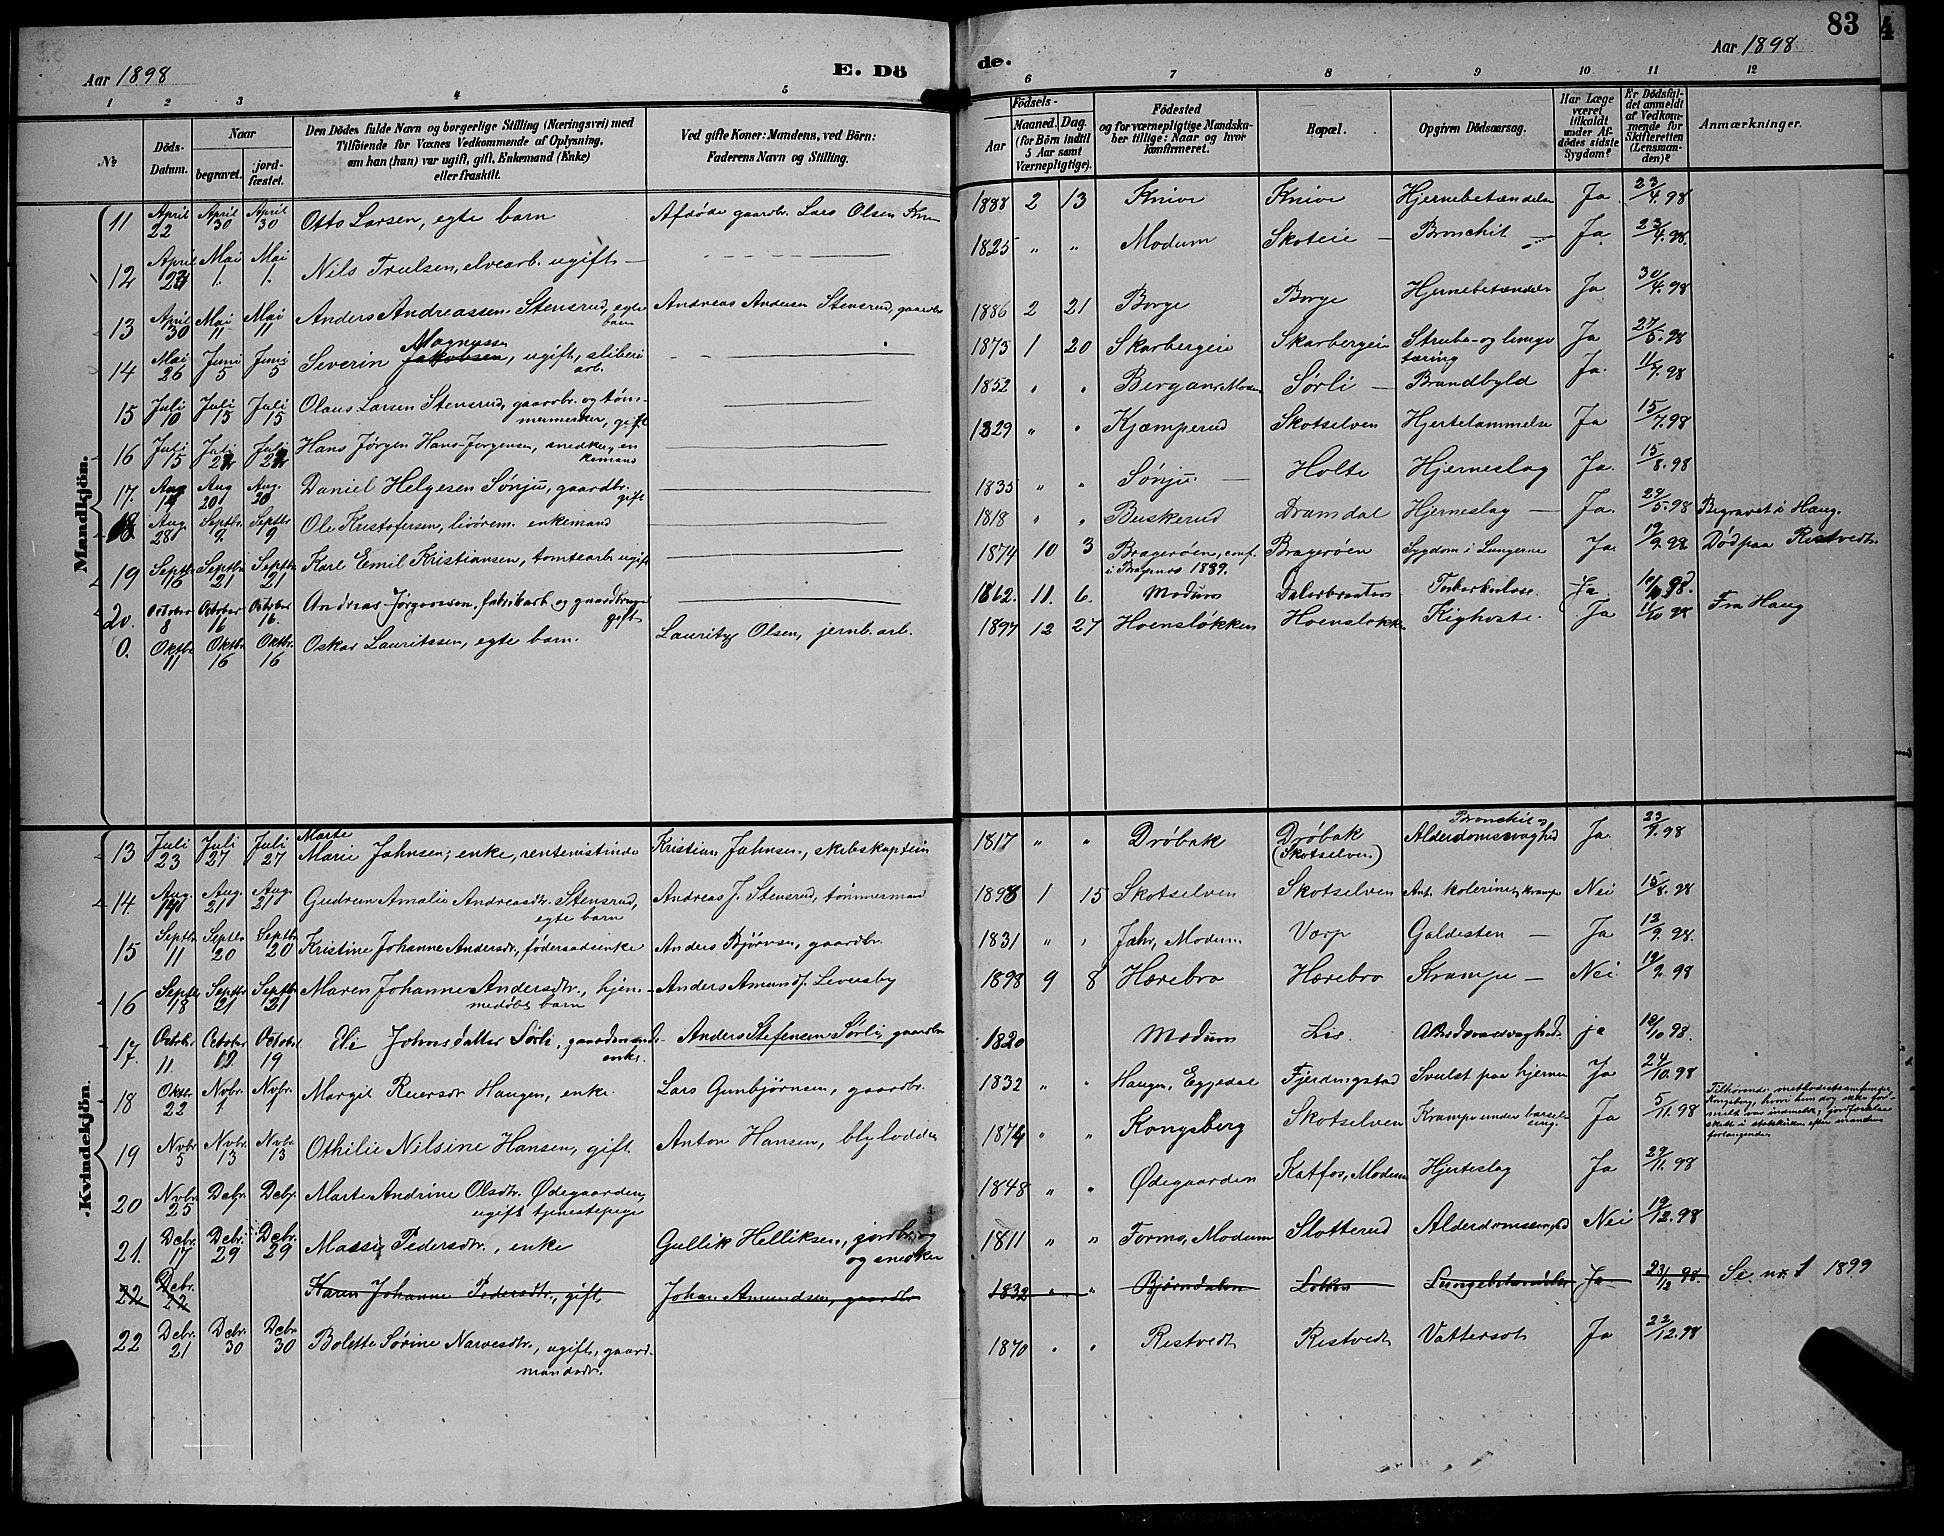 Aar 1898
E. Dö
de.
Aar 1898
83
4
1 2 3 4 5 6 7 8 9 10 11 12
№
Döds-Datum.
Naar
begravet.
jord-fæstet.
Den Dödes fulde Navn og borgerlige Stilling (Næringsvei) med
Tilföiende for Voxnes Vedkommende af Oplysning,
om han (hun) var ugift, gift, Enkemand (Enke)
eller fraskilt.
Ved gifte Koner: Mandens, ved Börn:
Faderens Navn og Stilling.
Födsels-
Aar
Maaned. Dag.
(for Börn indtil
5 Aar samt
Værnepligtige).
Födested
og for værnepligtige Mandska-
ber tillige: Naar og hvor
konfirmeret.
Bopæl.
Opgiven Dödsaarsag.
Har Læge
været
tilkaldt
under Af-
dödes sidste
Sygdom?
Er Dödsfal-
det anmeldt
af Vedkom-
mende for
Skifteretten
(Lensman-
den)?
Anmærkninger.
Mandkjön.
11 April 22 April 30 April 30 Otto Larsen, egte barn Afdøde gaardbr. Lars Olsen 1888 2 13 Knive Knive Ja 23/4.98
12 April 23 Mai 1. Mai 1. Nils Trulsen, elvearb. ugift — 1825 " " Modum Skoteie — Bronchit — Ja 23/4.98.
13 April 30 Mai 11 Mai 11 Anders Andreassen Stensrud, egte barn Andreas Andersen Stensrud, gaardbr 1886 2 21 Borge Borge Ja 30/4.98
14 Mai 26 Juni 5 Juni 5 Severin Jakobsen Magnussen, ugift, sliberi arb. 1873 1 20 Skarbergeie Skarbergeie Strube- og lungetæring Ja 27/5.98
15 Juli 10 Juli 15 Juli 15 Olaus Larsen Stensrud, gaardbr. og tømmermerker, gift 1852 " " Bergan, Modum Sørli — Brandbyld Ja. 11/7.98
16 Juli 15 Juli Juli Hans Jørgen Hans-Jorgensen, snedker, enkemand 1829 " " Kjæmperud Skotselven Hjertelammelse Ja 15/7.98
17. Aug Aug 20 Aug. 20 Daniel Helgesen Sønju, gaardbr. gift 1835 " " Sønju — Holte Hjerneslag Ja. 15/8.98
18 Aug. 28 Septbr 9. Septbr 9 Ole Kristofersen, enkemand 1818 " " Buskerud Dramdal Hjerneslag — Ja. Begravet i Haug.
19 Septbr 16 Septbr 21 Septbr 21 Karl Emil Kristiansen, tomtearb. ugift 1874 10 3 Bragerøen, conf. i Bragernes 1889. Bragerøen Sygdom i Lungerne Ja. 19/9.98 Død paa Ristvedt.
20. October 8 October 16 October 16. Andreas Jørgensen, fabrikarb. og gift 1862. 11. 6. Modum Ja Fra Haug
0. Oktbr 11 Oktbr 16 Oktbr. 16 Oskar Lauritssen, egte barn. Lauritz Olsen, jernb. arb. 1897 12 27 Hoensløkken Hoensløkk. Kighoste. Ja 11/10 98
Kvindekjön.
13 Juli 23 Juli 27 Juli 27 Marte Marie Jahnsen; enke, rentenistinde Kristian Jahnsen, skibskaptein 1817 " " Drøbak Drøbak (Skotselven) Bronchit Alderdomssvaghed Ja. 23/7.98
14. Aug. Aug. 21 Aug. 21 Gudrun Amalie Andreasdr. Stensrud, egte barn Andreas J. Stensrud, tømmermand 1898 1 15 Skotselven Skotselven Ant. kolerine, krampe Nei 15/8.98
15 Septbr 11 Septbr 20 Septbr 20 Kristine Johanne Andersdr., føderaadsenke Anders Bjørnsen, gaardbr. 1831 " " Jahr, Modum Værp Galdesten — Ja 13/9.98.
16 Septbr 18 Septbr 21 Septbr 21 Maren Johanne Andersdtr., hjemmedøbt barn Anders Amunds. Leversby 1898 9 8 Hærebro Hærebro Krampe — Nei 19/9.98
17. Octobr 11. October 19 October 19 Eli Johnsdatter Sørli, gaardmands-enke. Anders Stefensen Sørli, gaardbr 1820 Modum Lis. ja
18 Oktbr 22 Nvbr. 1 Nvbr. 1 Margit Reiersdr Haugen, enke. Lars Gunbjørnsen, gaardbr. 1832 " " Haugen, Eggedal Fjerdingstad Svulst paa hjernen Ja 24/10.98
19 Nvbr. 5 Nvbr. 13 Nvbr. 13 Othilie Nilsine Hansen, gift. Anton Hansen, blylodder 1874 " " Kongsberg Skotselven Krampe under barselseng. Ja 5/11.98 Tilhørende methodistsamfundet, Kongsberg,
20 Nvbr. 25 Dcbr. Dcbr. Marte Andrine Olsdtr. Ødegaarden, ugift tjenestepige 1848 " " Ødegaarden Katfos, Modum Hjerteslag Ja 29/11.98
21. Dcbr. 17 Dcbr. 29 Dcbr. 29 Massie Pedersdtr., enke Gullik Helliksen, jordbr. og og snedker 1811 " " Formo, Modum Slotterud Alderdomssvaghed Nei 19/12.98
22 Dcbr. 22 Karen Johanne Pedersdtr., gift, Johan Amundsen, gaardbr 1832 " " Bjørndalen Lokken Lungebetændelse Ja 23/12 98. Se nr. 1 1899
22 Dcbr. 21 Dcbr. 30 Dcbr. 30 Bolette Sørine Narvesdtr., ugift, gaardmandsdr. 1870 " " Ristvedt Ristvedt Vattersot Ja 22/12.98